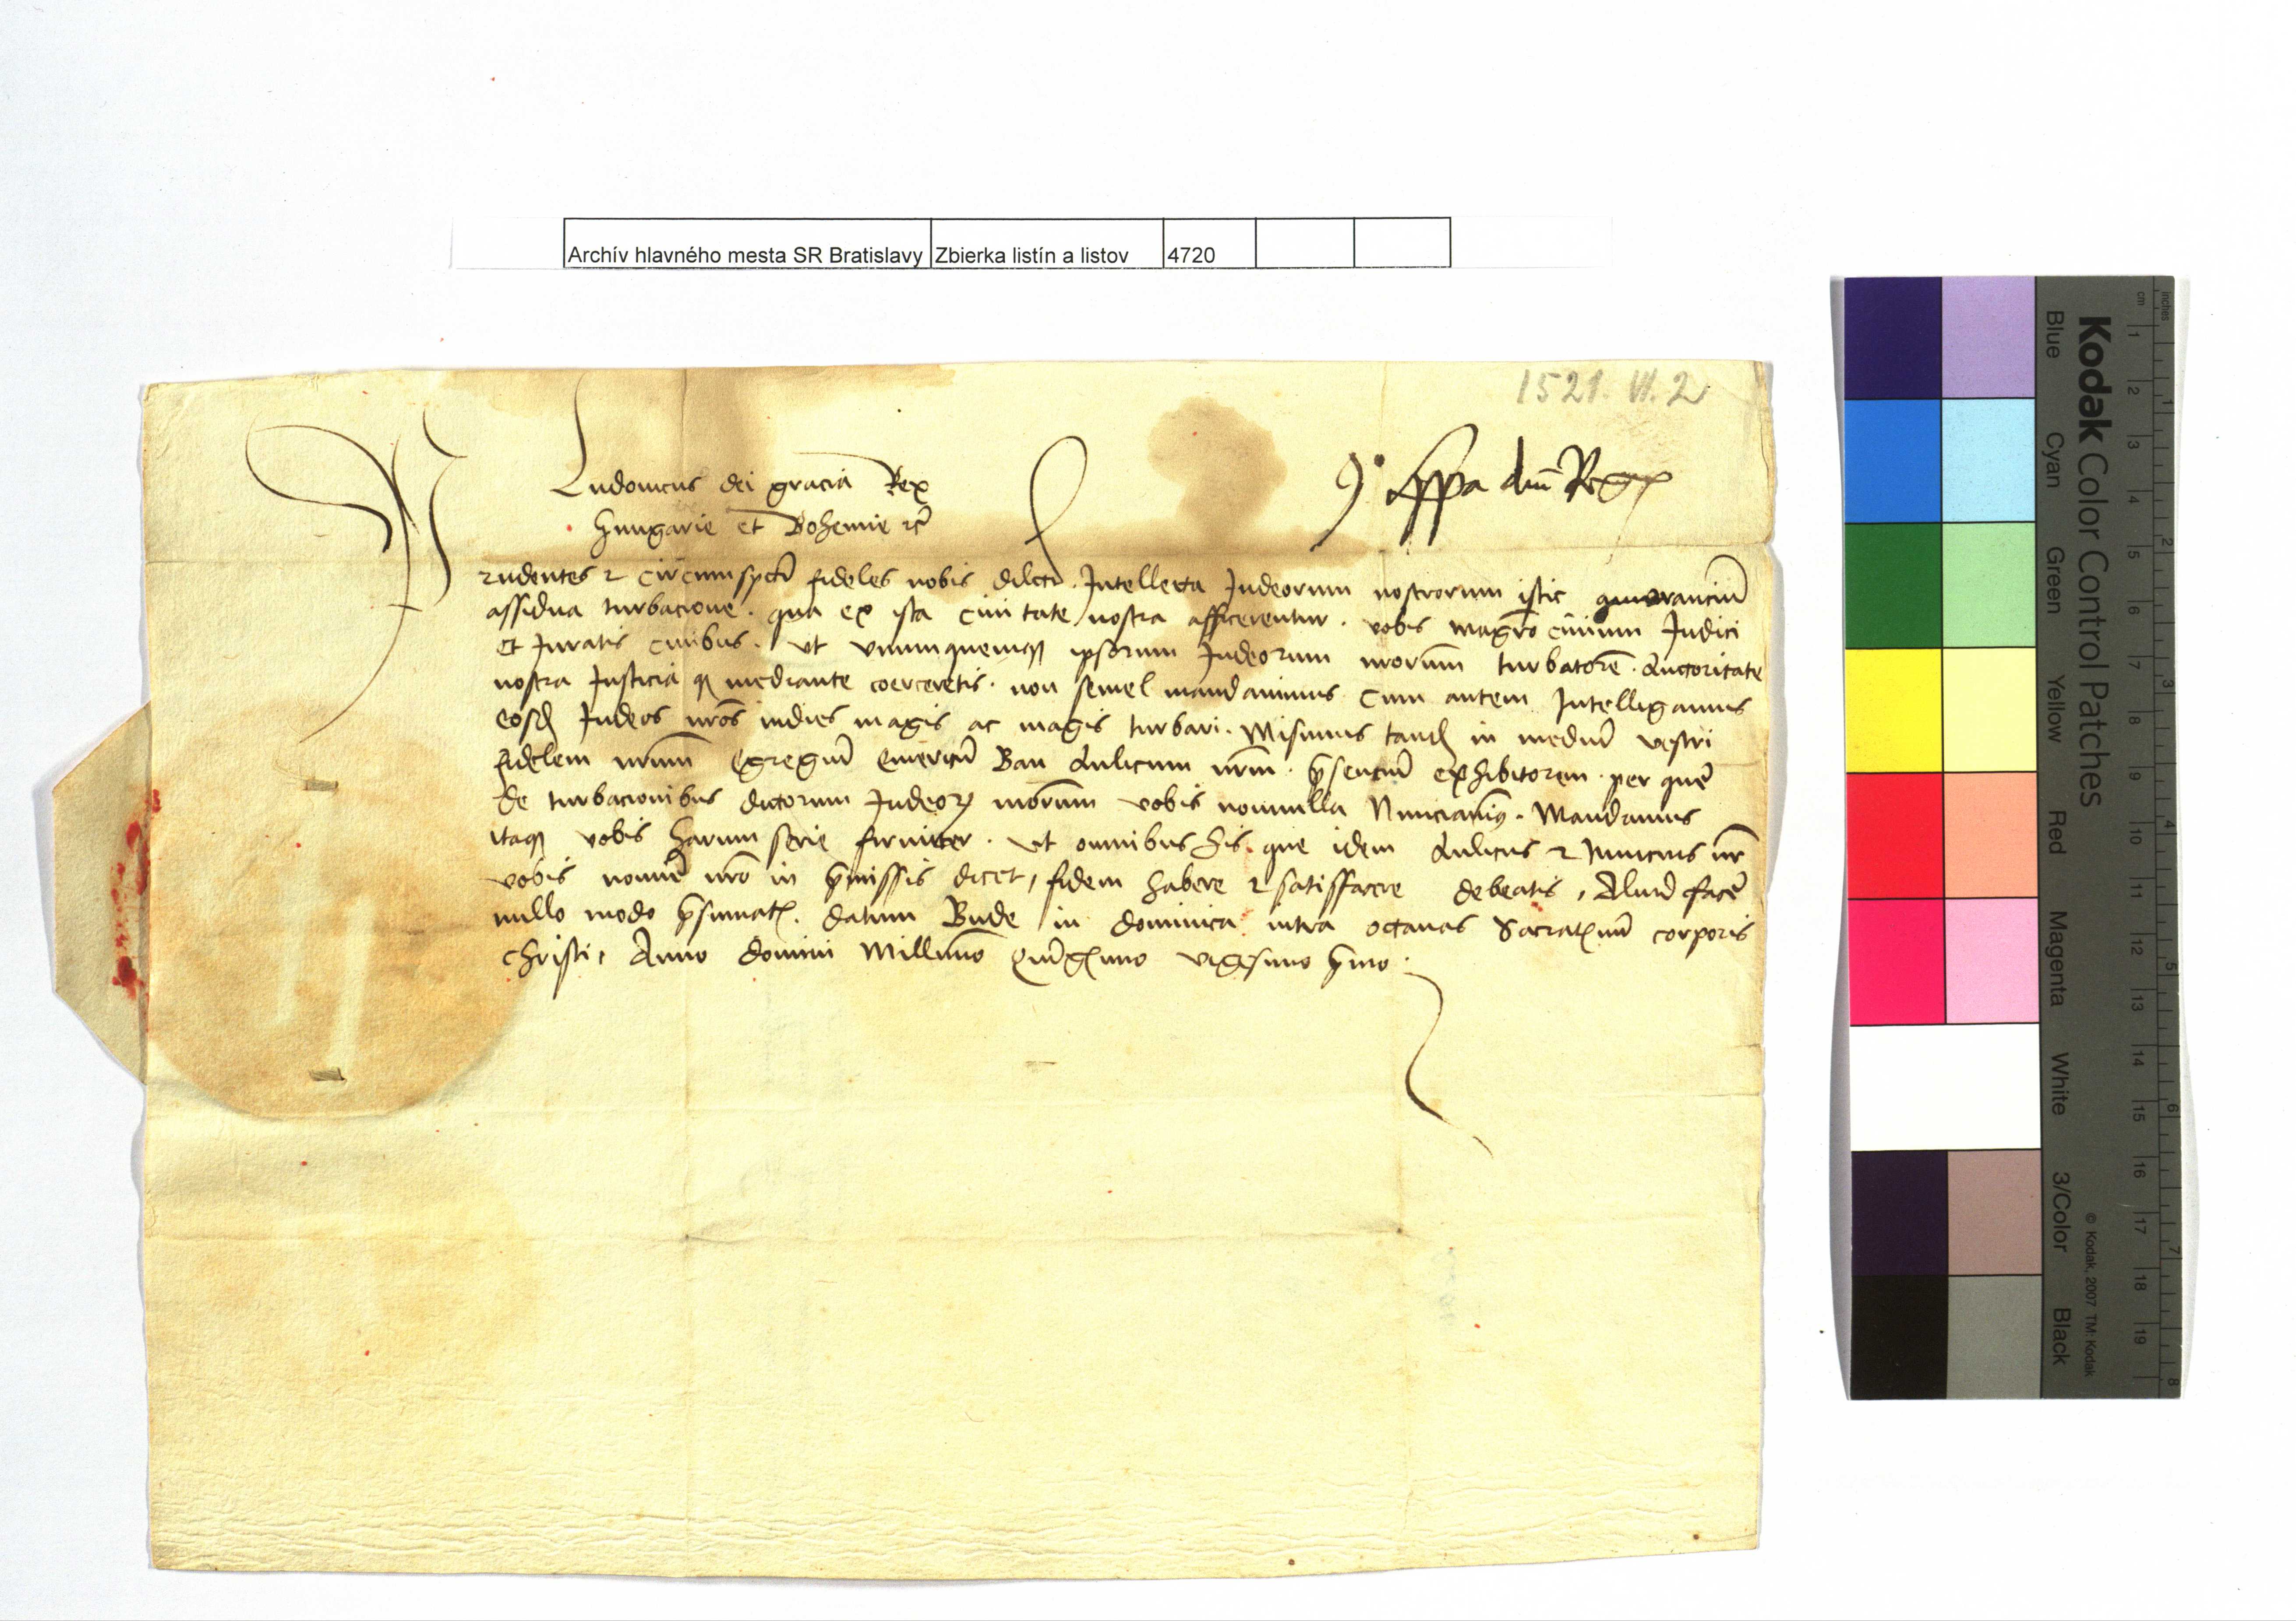 Archív hlavného mesta SR Bratislavy Zbierka listín a listov 4720
1521. VI. 2
Ludouicus dei gracia Rex
Hungarie et Bohemie rc̄
dn̄i Regis
Prudentes & circumspecti fideles nobis dilecti. Intellecta Judeorum nostrorum istic
assidua turbacione. qua ex ista ciuitate nostra afficerentur. vobis magr̄o ciuium Judici
et Juratis ciuibus. vt vnumquemqꝫ ipsorum Judeorum nr̄orum turbatorē. Auctoritate
nostra Justiciaqꝫ mediante coerceretis. non semel mandauimus. Cum autem Intelligamus
eosd̄ Judeos nr̄os indies magis ac magis turbari. Misimus tand̄ in mediū vestri
fidelem nr̄um Egregiū Emericū Ban Aulicum nr̄m. p̄senciū exhibitorem. per quē
de turbacionibus dictorum Judeoꝝ nr̄orum vobis nonnulla Nunciauimꝰ. Mandamus
itaqꝫ vobis harum serie firmiter. vt omnibus his. que idem Aulicus & Nuncius nr̄
vobis nomīe nr̄o in p̄missis dicet, fidem habere & satisfacere debeatis, Aliud facē
nullo modo p̄sumatꝭ. datum Bude in dominica intra octauas Sacratꝭimi corporis
christi, Anno domini Millimo Quīgꝭimo vigesimo p̄mo.
Kodak Color Control Patches
Blue Cyan Green Yellow Red Magenta White 3/Color Black
© Kodak, 2007 TM: Kodak
inches 1 2 3 4 5 6 7 8
cm 1 2 3 4 5 6 7 8 9 10 11 12 13 14 15 16 17 18 19